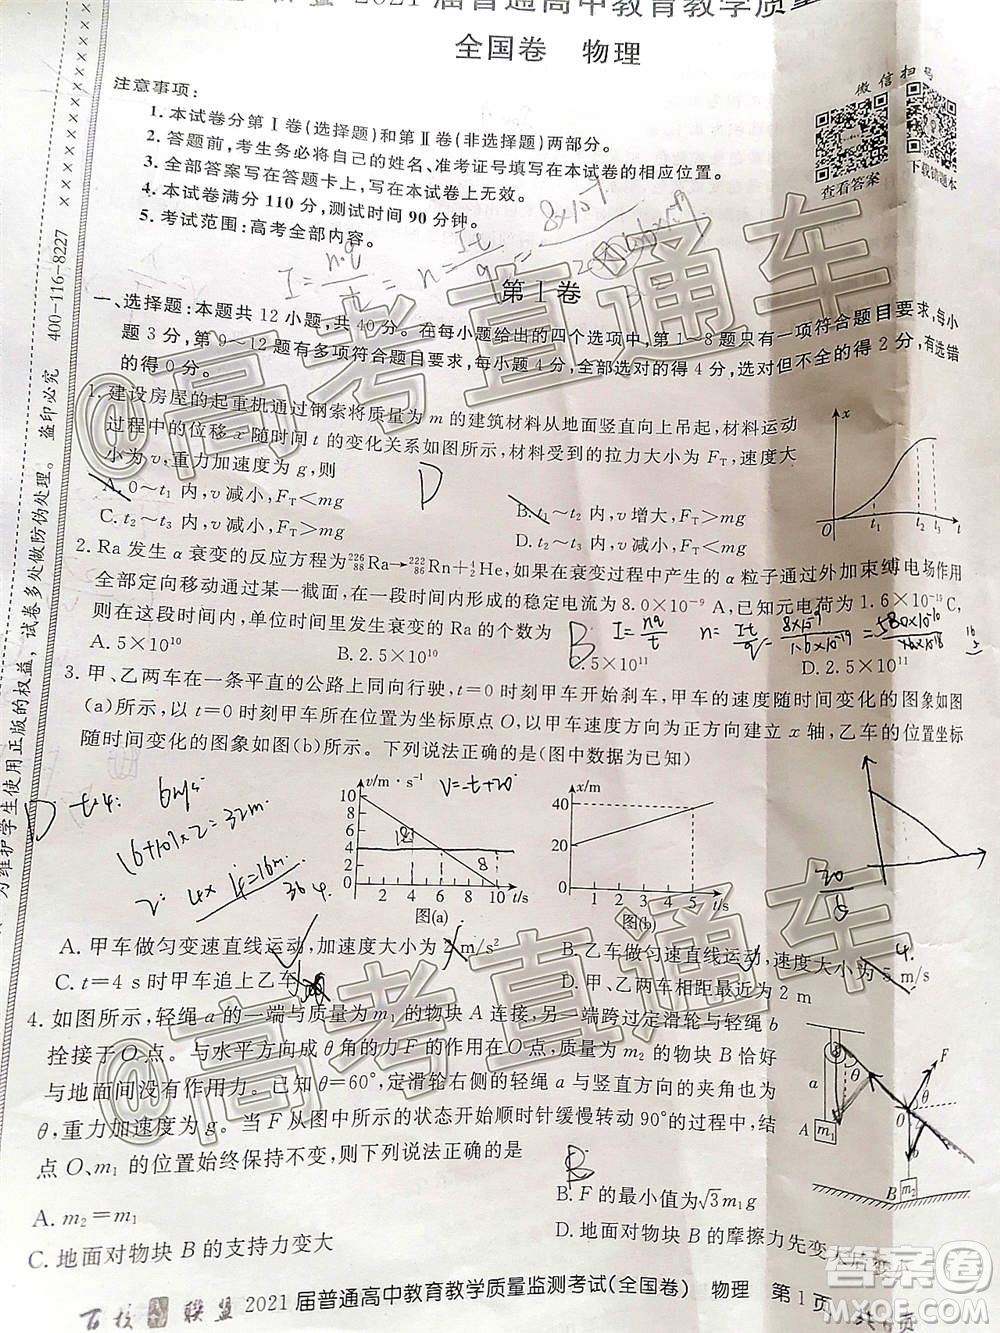 2021届普通高中教育教学质量
全国卷 物理
微信扫码
查看答案
下载错题本
注意事项:
1. 本试卷分第Ⅰ卷(选择题)和第Ⅱ卷(非选择题)两部分。
2. 答题前,考生务必将自己的姓名、准考证号填写在本试卷的相应位置。
3. 全部答案写在答题卡上,写在本试卷上无效。
4. 本试卷满分 110 分,测试时间 90 分钟。
5. 考试范围:高考全部内容。
第Ⅰ卷
一、选择题:本题共 12 小题,共 40 分。在每小题给出的四个选项中,第 1~8 题只有一项符合题目要求,每小
题 3 分,第 9~12 题有多项符合题目要求,每小题 4 分,全部选对的得 4 分,选对但不全的得 2 分,有选错
的得 0 分。
1. 建设房屋的起重机通过钢索将质量为 m 的建筑材料从地面竖直向上吊起,材料运动
过程中的位移 x 随时间 t 的变化关系如图所示,材料受到的拉力大小为 FT,速度大
小为 v,重力加速度为 g,则
A. 0~t1 内,v 减小,FT<mg
B. t1~t2 内,v 增大,FT>mg
C. t2~t3 内,v 减小,FT>mg
D. t2~t3 内,v 减小,FT<mg
x
O t1 t2 t3 t
2. Ra 发生 α 衰变的反应方程为 ²²⁶₈₈Ra→²²²₈₆Rn+⁴₂He,如果在衰变过程中产生的 α 粒子通过外加束缚电场作用
全部定向移动通过某一截面,在一段时间内形成的稳定电流为 8.0×10⁻⁹ A,已知元电荷为 1.6×10⁻¹⁹ C,
则在这段时间内,单位时间里发生衰变的 Ra 的个数为
A. 5×10¹⁰
B. 2.5×10¹⁰
C. 5×10¹¹
D. 2.5×10¹¹
3. 甲、乙两车在一条平直的公路上同向行驶,t=0 时刻甲车开始刹车,甲车的速度随时间变化的图象如图
(a)所示,以 t=0 时刻甲车所在位置为坐标原点 O,以甲车速度方向为正方向建立 x 轴,乙车的位置坐标
随时间变化的图象如图(b)所示。下列说法正确的是(图中数据为已知)
v/m·s⁻¹
10
8
6
4
2
0 2 4 6 8 10 t/s
图(a)
x/m
40
20
0 1 2 3 4 5 t/s
图(b)
A. 甲车做匀变速直线运动,加速度大小为 2 m/s²
B. 乙车做匀速直线运动,速度大小为 5 m/s
C. t=4 s 时甲车追上乙车
D. 甲、乙两车相距最近为 2 m
4. 如图所示,轻绳 a 的一端与质量为 m1 的物块 A 连接,另一端跨过定滑轮与轻绳 b
拴接于 O 点。与水平方向成 θ 角的力 F 的作用在 O 点,质量为 m2 的物块 B 恰好
与地面间没有作用力。已知 θ=60°,定滑轮右侧的轻绳 a 与竖直方向的夹角也为
θ,重力加速度为 g。当 F 从图中所示的状态开始顺时针缓慢转动 90°的过程中,结
点 O、m1 的位置始终保持不变,则下列说法正确的是
A. m2=m1
B. F 的最小值为√3m1g
C. 地面对物块 B 的支持力变大
D. 地面对物块 B 的摩擦力先变大
a
A m1
F
θ
O
B m2
百校联盟 2021 届普通高中教育教学质量监测考试(全国卷) 物理 第 1 页
共 6 页
为维护学生使用正版的权益,试卷多处做防伪处理。盗印必究 400-116-8227
@高考直通车
@高考直通车
答案卷